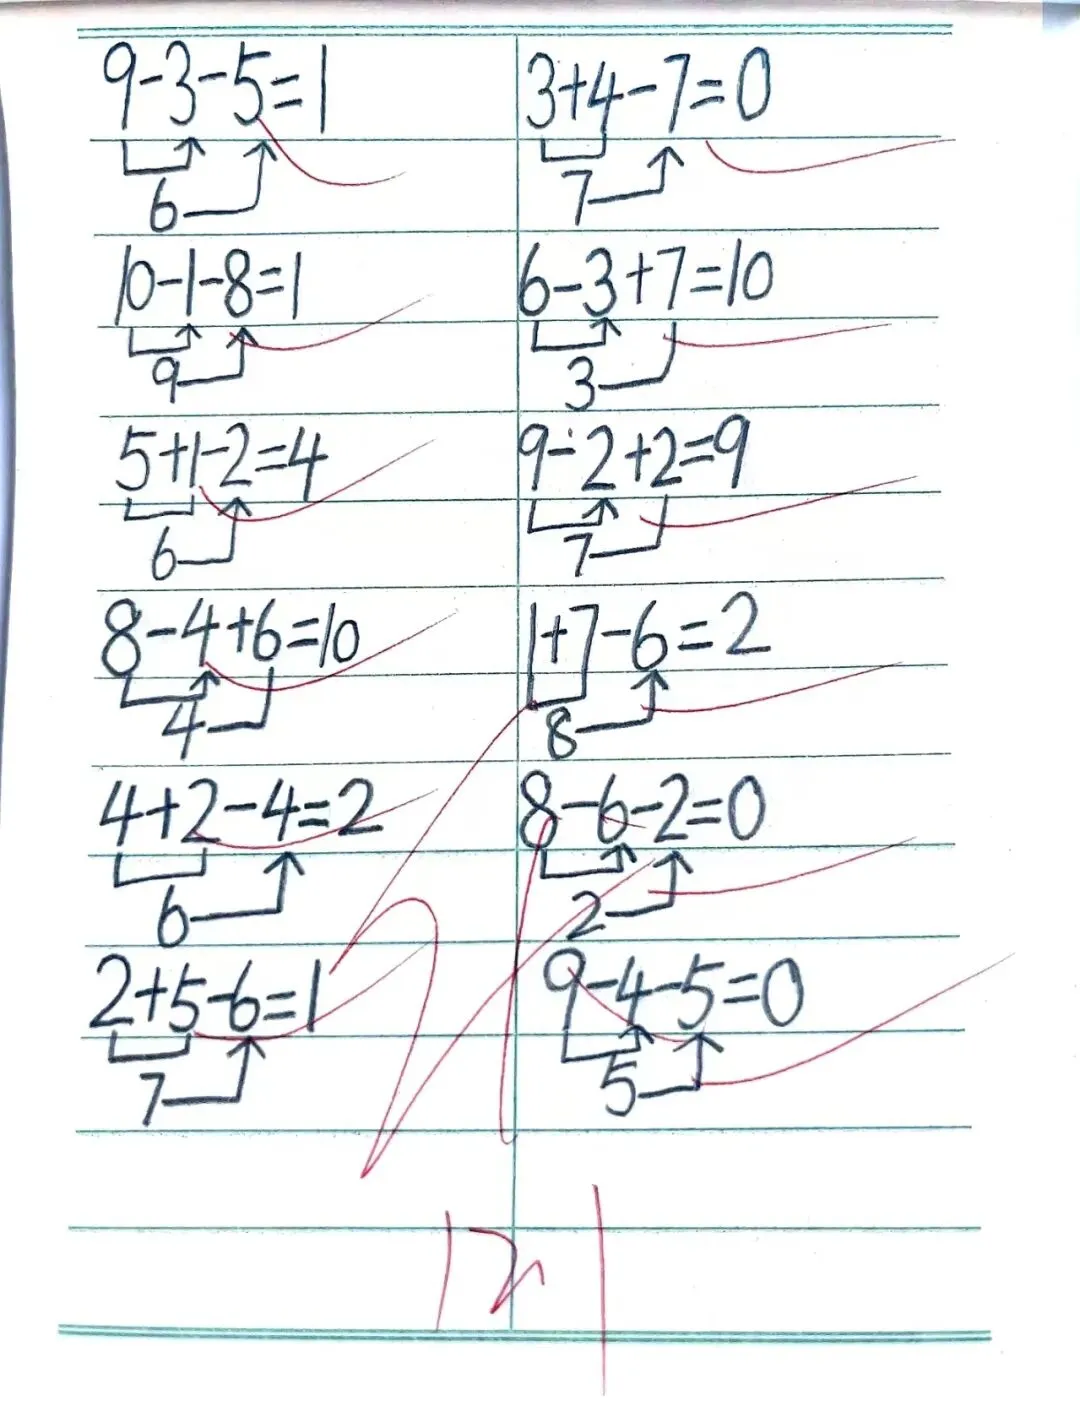 9-3-5=1
6
10-1-8=1
9
5+1-2=4
6
8-4+6=10
4
4+2-4=2
6
2+5-6=1
7
3+4-7=0
7
6-3+7=10
3
9-2+2=9
7
1+7-6=2
8
8-6-2=0
2
9-4-5=0
5